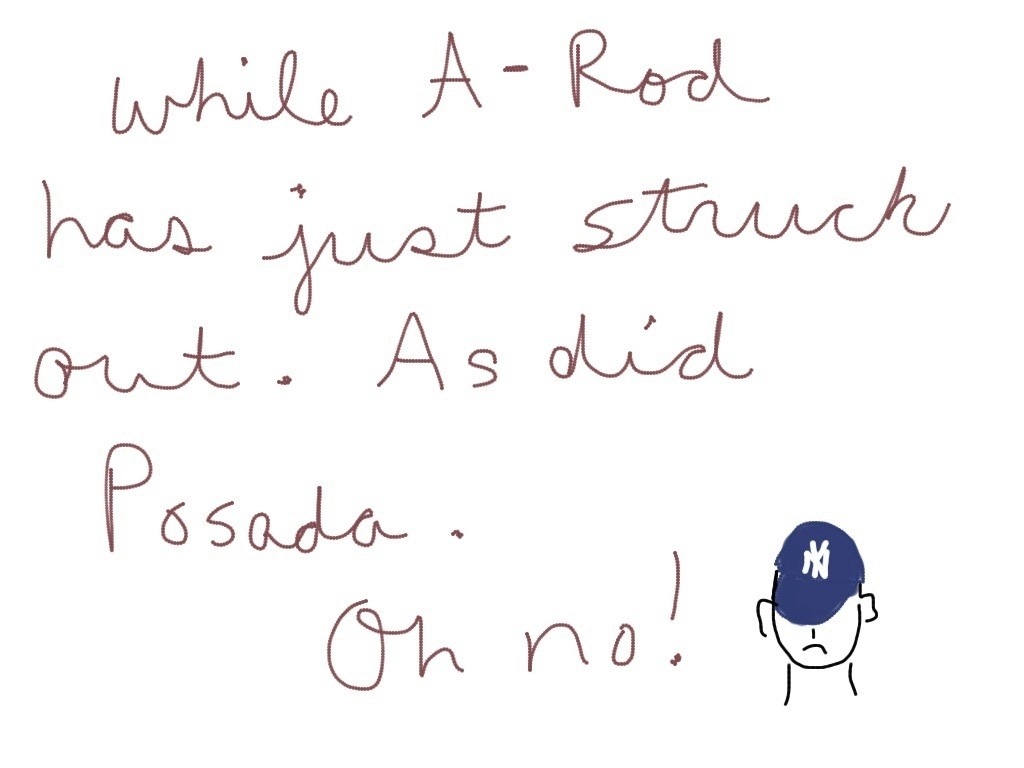 while A-Rod
has just struck
out. As did
Posada.
Oh no!
NY